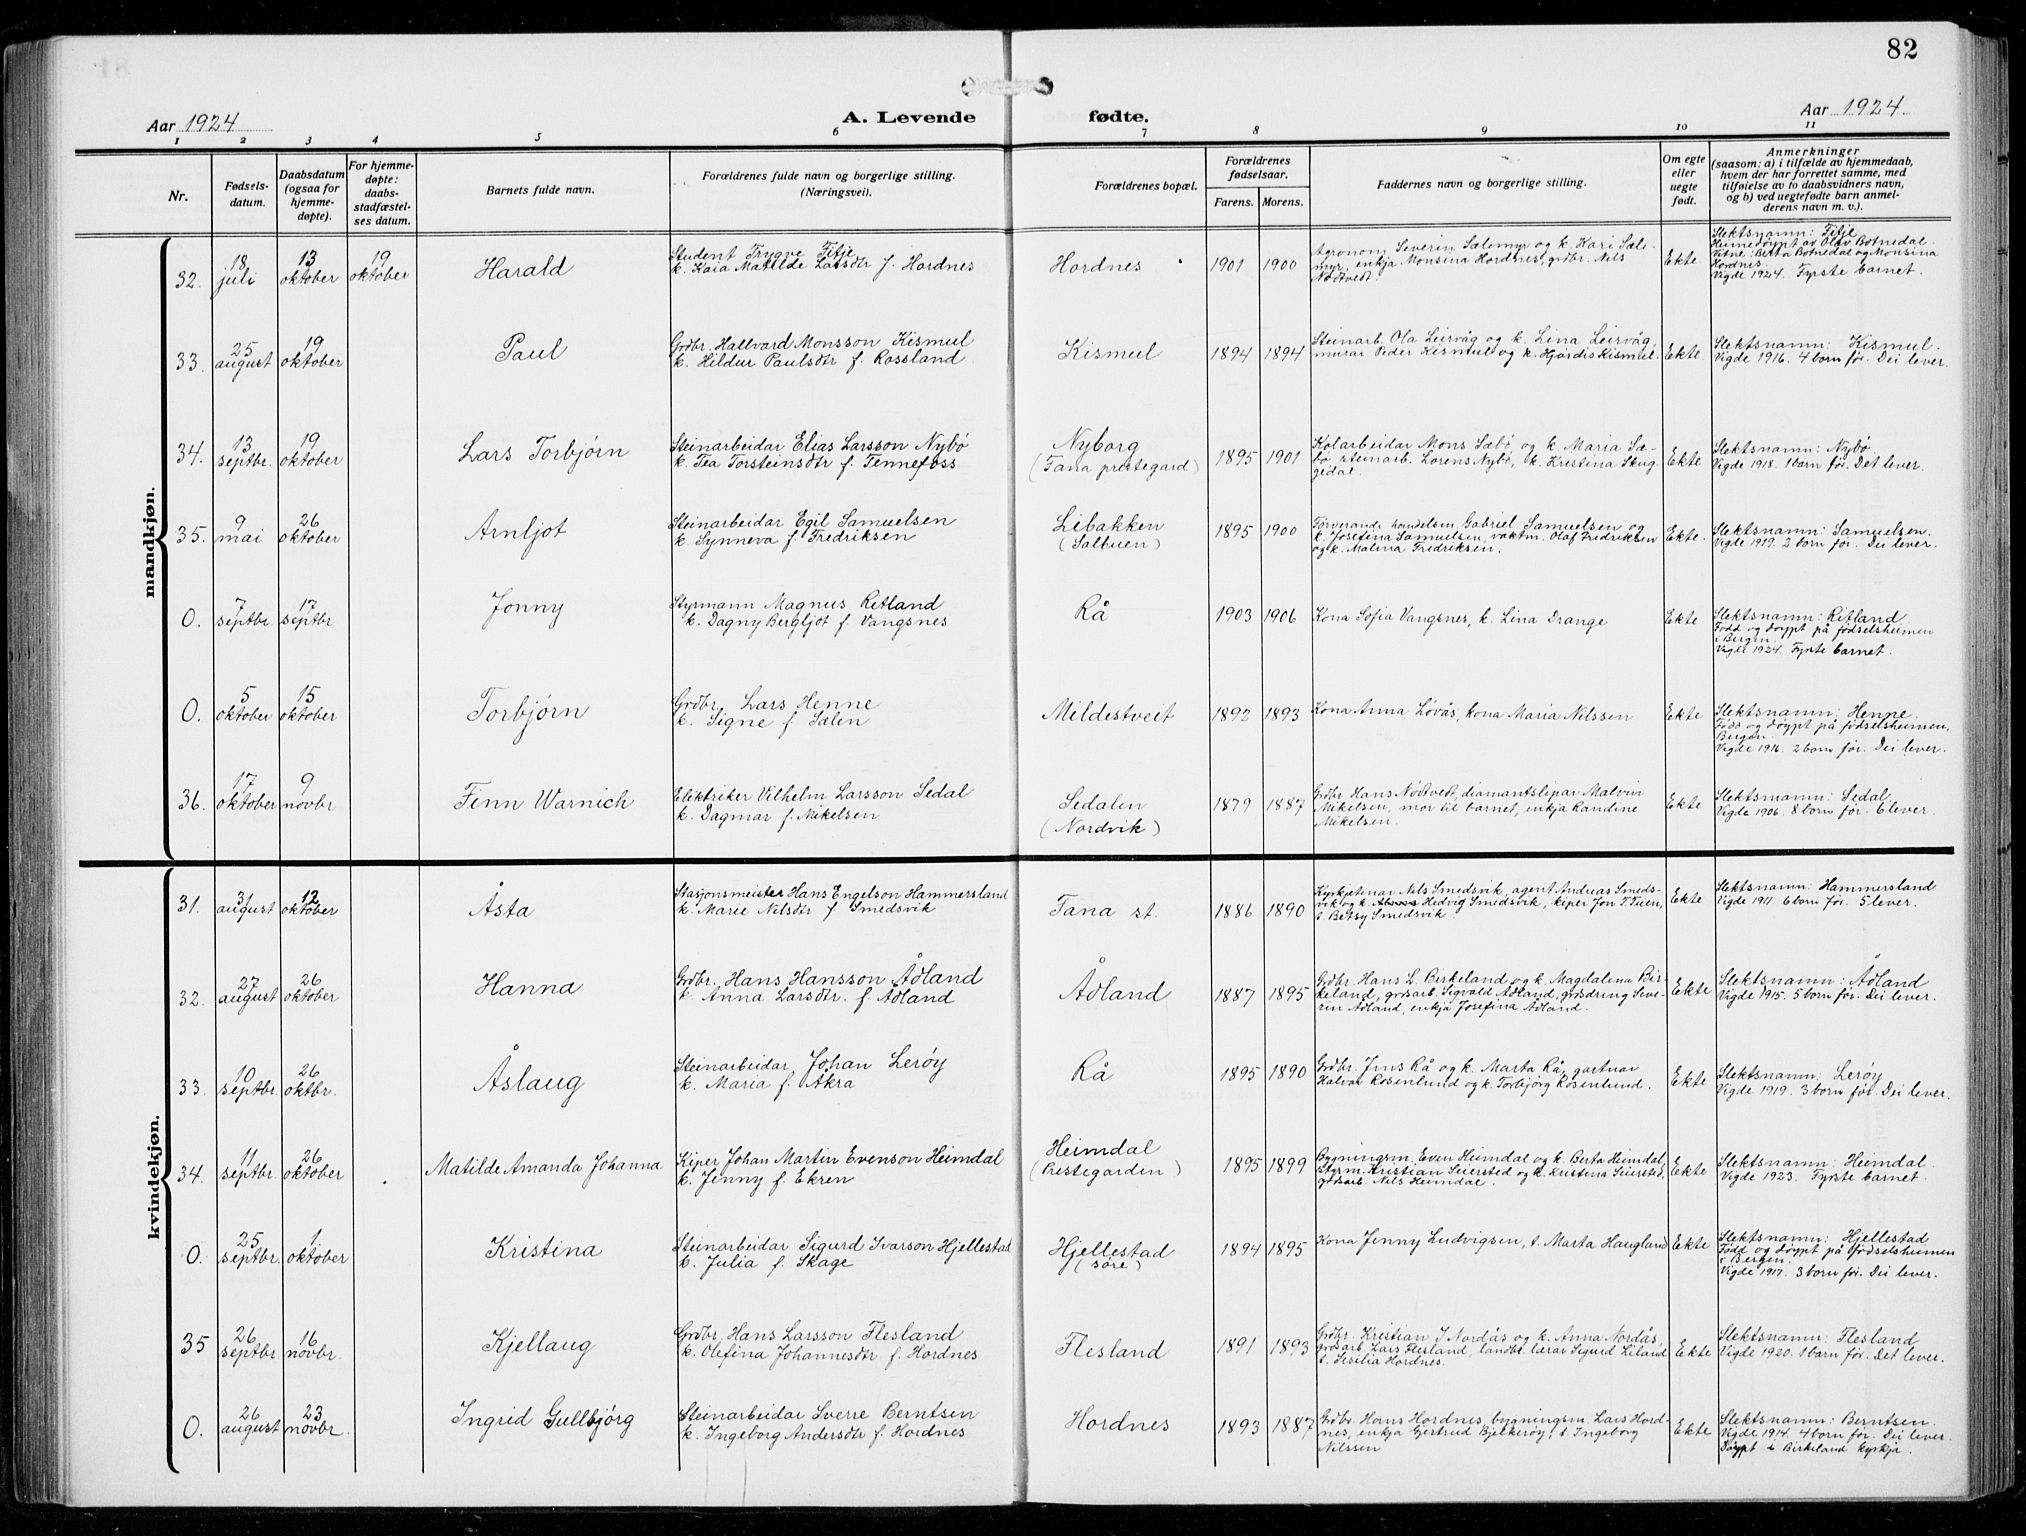 82
Aar 1924
A. Levende fødte.
Aar 1924
1 2 3 4 5 6 7 8 9 10 11
Nr.
Fødsels-
datum.
Daabsdatum
(ogsaa for
hjemme-
døpte).
For hjemme-
døpte:
daabs-
stadfæstel-
ses datum.
Barnets fulde navn.
Forældrenes fulde navn og borgerlige stilling.
(Næringsvei).
Forældrenes bopæl.
Forældrenes
fødselsaar.
Farens. Morens.
Faddernes navn og borgerlige stilling.
Om egte
eller
uegte
født.
Anmerkninger
(saasom: a) i tilfælde av hjemmedaab,
hvem der har forrettet samme, med
tilføielse av to daabsvidners navn,
og b) ved uegtefødte barn anmel-
derens navn m. v.).
mandkjøn.
32. 18 juli
13 oktober
19 oktober
Harald
Student Trygve Titje
k. Kaia Matilde Larsdtr f. Hordnes
Hordnes
1901 1900
Agronom Severin Sælemyr og k. Kari Sæle-
myr, enkja Monsina Hordnes, grdbr. Nils
Nødtvedt.
Ekte
Slektsnamn: Titje
Heimedøypt av Olav Botnedal.
Vitne: Berta Botnedal og Monsina
Hordnes.
Vigde 1924. Fyrste barnet.
33. 25 august
19 oktober
Paul
Grdbr. Hallvard Monsson Kismul
k. Hildur Paulsdtr f. Rossland
Kismul
1894 1894
Steinarb. Ola Leirvåg og k. Lina Leirvåg,
murar Peder Kismul og k. Hjørdis Kismul.
Ekte
Slektsnamn: Kismul.
Vigde 1916. 4 born før. Dei lever.
34. 13 septbr.
19 oktober
Lars Torbjørn
Steinarbeidar Elias Larsson Nybø
k. Tea Torsteinsdtr f. Tennefoss
Nyborg
(Fana prestegard)
1895 1901
Kolarbeidar Mons Sæbø og k. Maria Sæ-
bø, steinarb. Lorens Nybø, k. Kristina Skug-
gedal.
Ekte
Slektsnamn: Nybø.
Vigde 1918. 1 born før. Det lever.
35. 9 mai
26 oktober
Arnljot
Steinarbeidar Egil Samuelsen
k. Synneva f. Fredriksen
Libakken
(Salbuen)
1895 1900
Forverande handelsm. Gabriel Samuelsen og
k. Josefina Samuelsen, vaktm. Olaf Fredriksen
og k. Malina Fredriksen.
Ekte.
Slektsnamn: Samuelsen.
Vigde 1919. 2 born før. Dei lever.
0. 7 septbr.
17 septbr
Jonny
Styrmann Magnus Ritland
k. Dagny Bergljot f. Vangsnes
Rå
1903 1906
Kona Sofia Vangsnes, k. Lina Drange
Ekte
Slektsnamn: Ritland.
Fødd og døypt på fødselsheimen
i Bergen.
Vigde 1924. Fyrste barnet.
0. 5 oktober
15 oktober
Torbjørn
Grdbr. Lars Henne
k. Signe f. Sælen
Mildestveit
1892 1893
Kona Anna Løvås, kona Maria Nilssen
Ekte
Slektsnamn: Henne.
Fødd og døypt på fødselsheimen,
Bergen.
Vigde 1916. 2 born før. Dei lever.
36. 17 oktober
9 novbr
Finn Warnich
Elektriker Vilhelm Larsson Sedal
k. Dagmar f. Mikelsen
Sedalen
(Nordvik)
1879 1887
Grdbr Hans Nødtvedt, diamantslipar Malvin
Mikelsen, mor til barnet, enkja Randine
Mikelsen.
Ekte
Slektsnamn: Sedal.
Vigde 1906. 8 born før. 6 lever.
kvindekjøn.
31. 31 august
12 oktober
Åsta
Stasjonsmeister Hans Engelson Hammersland
k. Marie Nilsdtr f. Smedsvik
Fana st.
1886 1890
Kyrkjetenar Nils Smedsvik, agent Andreas Smeds-
vik og k. Hedvig Smedsvik, kiper Jon T. Tuen,
t. Betsy Smedsvik.
Ekte
Slektsnamn: Hammersland
Vigde 1911. 6 born før. 5 lever.
32. 27 august
26 oktober
Hanna
Grdbr. Hans Hansson Ådland
k. Anna Larsdtr. f. Ådland
Ådland
1887 1895
Grdbr. Hans L. Birkeland og k. Magdalena Bir-
keland, grdsarb. Sigvald Ådland, grdsdreng Seve-
rin Ådland, enkja Josefina Ådland.
Ekte
Slektsnamn: Ådland
Vigde 1915. 5 born før. Dei lever.
33. 10 septbr.
26 oktbr.
Åslaug
Steinarbeidar Johan Lerøy
k. Maria f. Åkra
Rå
1895 1890
Grdbr. Jens Rå og k. Marta Rå, gartnar
Halvar Rosenlund og k. Torbjørg Rosenlund.
Ekte
Slektsnamn: Lerøy
Vigde 1919. 3 born før. Dei lever.
34. 11 septbr.
26 oktober
Matilde Amanda Johanna
Kiper Johan Martin Evenson Heimdal
k. Jenny f. Ekren
Heimdal
(Prestegarden)
1895 1899
Bygningsm. Even Heimdal og k. Berta Heimdal,
styrm. Kristian Seiersted og k. Kristina Seiersted,
grdsarb. Nils Heimdal.
Ekte
Slektsnamn: Heimdal.
Vigde 1923. Fyrste barnet.
0. 25 septbr.
1 oktober
Kristina
Steinarbeidar Sigurd Ivarson Hjellestad
k. Julia f. Skage
Hjellestad
(søre)
1894 1895
Kona Jenny Ludvigsen, t. Marta Haugland
Ekte
Slektsnamn: Hjellestad
Fødd og døypt på fødselsheimen
i Bergen.
Vigde 1917. 3 born før. Dei lever.
35 26 septbr.
16 novbr.
Kjellaug
Grdbr. Hans Larsson Flesland
k. Olefina Johannesdtr f. Hordnes
Flesland
1891 1893
Grdbr. Kristian J Nordås og k. Anna Nordås,
grdsarb. Lars Flesland, landbr. lærar Sigurd Liland
t. Sesilia Hordnes.
Ekte
Slektsnamn: Flesland
Vigde 1920. 1 born før. Det lever.
0. 26 august
23 novbr.
Ingrid Gullbjørg
Steinarbeidar Sverre Berntsen
k. Ingeborg Andersdtr f. Hordnes
Hordnes
1893 1887
Grdbr. Hans Hordnes, bygningsm. Lars Hord-
nes, enkja Gertrud Bjelkerøy, t. Ingeborg
Nilssen
Ekte
Slektsnamn: Berntsen.
Vigde 1914. 4 born før. Dei lever.
Døypt i Birkeland kyrkja.